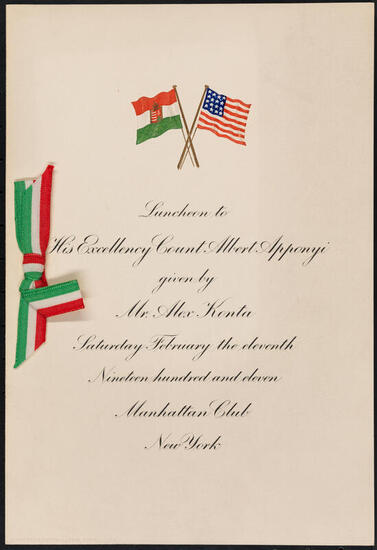 Luncheon to
His Excellency Count Albert Apponyi
given by
Mr. Alex Konta
Saturday February the eleventh
Nineteen hundred and eleven
Manhattan Club
New York